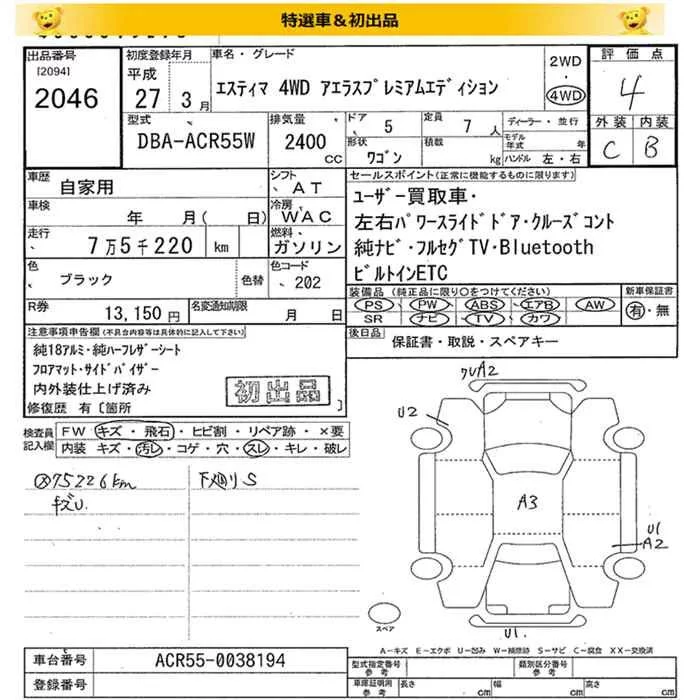 特選車&初出品
出品番号
[2094]
2046
初度登録年月
平成
27 3月
車名・グレード
エスティマ 4WD アエラスプレミアムエディション
2WD
・
4WD
評価点
4
外装 内装
C B
型式
DBA-ACR55W
排気量
2400
cc
ドア 5
形状 ワゴン
定員 7 人
積載 kg
ディーラー・並行
モデル年式 年
ハンドル 左・右
車歴
自家用
シフト
AT
車検
年 月( 日)
冷房
WAC
走行
7万5千220 km
燃料
ガソリン
色
ブラック
色替
色コード
202
R券
13,150円
名変通知期限
月 日
セールスポイント(正常に機能するものに限ります)
ユーザー買取車・
左右パワースライドドア・クルーズコント
純ナビ・フルセグTV・Bluetooth
ビルトインETC
装備品(純正品に限り○をつけてください)
PS PW ABS エアB AW
SR ナビ TV カワ
新車保証書
有・無
後日品
保証書・取説・スペアキー
注意事項申告欄(不具合内容等は具体的に記入して下さい)
純18アルミ・純ハーフレザーシート
フロアマット・サイドバイザー
内外装仕上げ済み
初出品
修復歴 有〔箇所 〕
検査員
記入欄
FW キズ・飛石・ヒビ割・リペア跡・×要
内装 キズ・汚レ・コゲ・穴・スレ・キレ・破レ
75226km
キズU.
下廻りS
A2
U2
A3
U1
A2
U1.
スペア
A-キズ E-エクボ U-凹み W-補修跡 S-サビ C-腐食 XX-交換済
車台番号
ACR55-0038194
登録番号
型式指定番号
参考
類別区分番号
参考
車庫証明用
参考
長さ cm
幅 cm
高さ cm